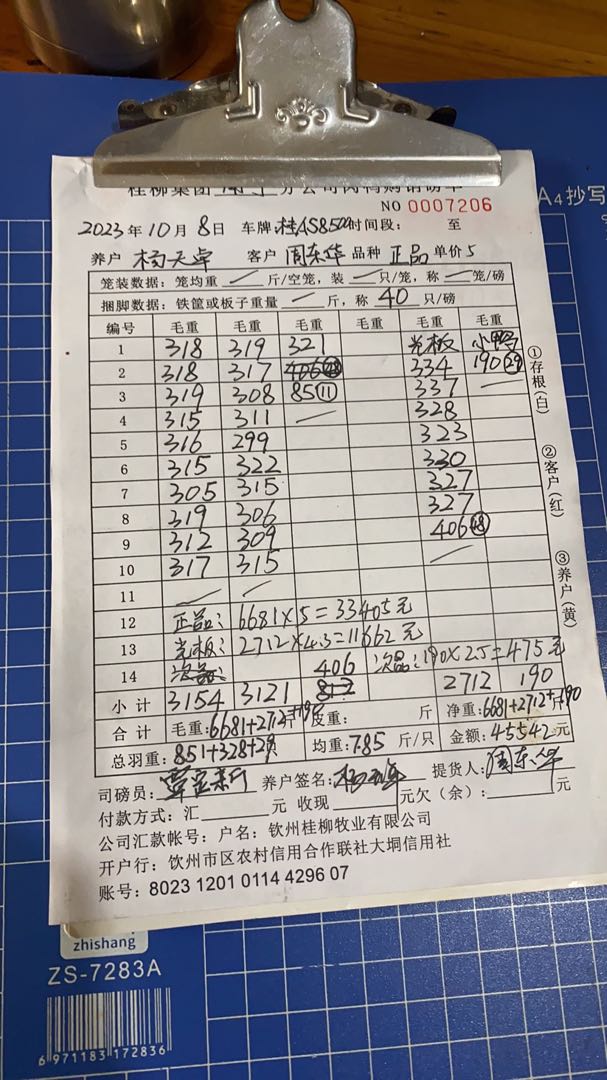 桂柳集团 南宁 分公司肉鸭购销磅单
NO 0007206
2023年10月8日 车牌:桂AS8500时间段: 至
养户 杨天卓 客户 周东华 品种 正品 单价 5
笼装数据:笼均重 / 斤/空笼,装 / 只/笼,称 / 笼/磅
捆脚数据:铁筐或板子重量 / 斤,称 40 只/磅
编号 毛重 毛重 毛重 毛重 毛重 毛重
1 318 319 321 光板 小鸭
2 318 317 406 48 334 190 29
3 319 308 85 11 337 /
4 315 311 / 328
5 316 299 323
6 315 322 330
7 305 315 327
8 319 306 327
9 312 309 406 48
10 317 315 /
11 / /
12 正品: 6681×5=33405元
13 光板: 2712×4.3=11662元
14 次品: 406 次品:190×2.5=475元
小计 3154 3121 812 2712 190
合计 毛重:6681+2712+190斤 皮重: 斤 净重:6681+2712+190斤
总羽重:851+328+29只 均重:7.85 斤/只 金额:45542元
司磅员: 养户签名: 提货人:周东华
付款方式:汇 元 收现 元欠(余): 元
公司汇款帐号:户名:钦州桂柳牧业有限公司
开户行:钦州市区农村信用合作联社大垌信用社
账号:8023 1201 0114 4296 07
①存根(白)
②客户(红)
③养户(黄)
A4抄写
zhishang
ZS-7283A
6 971183 172836